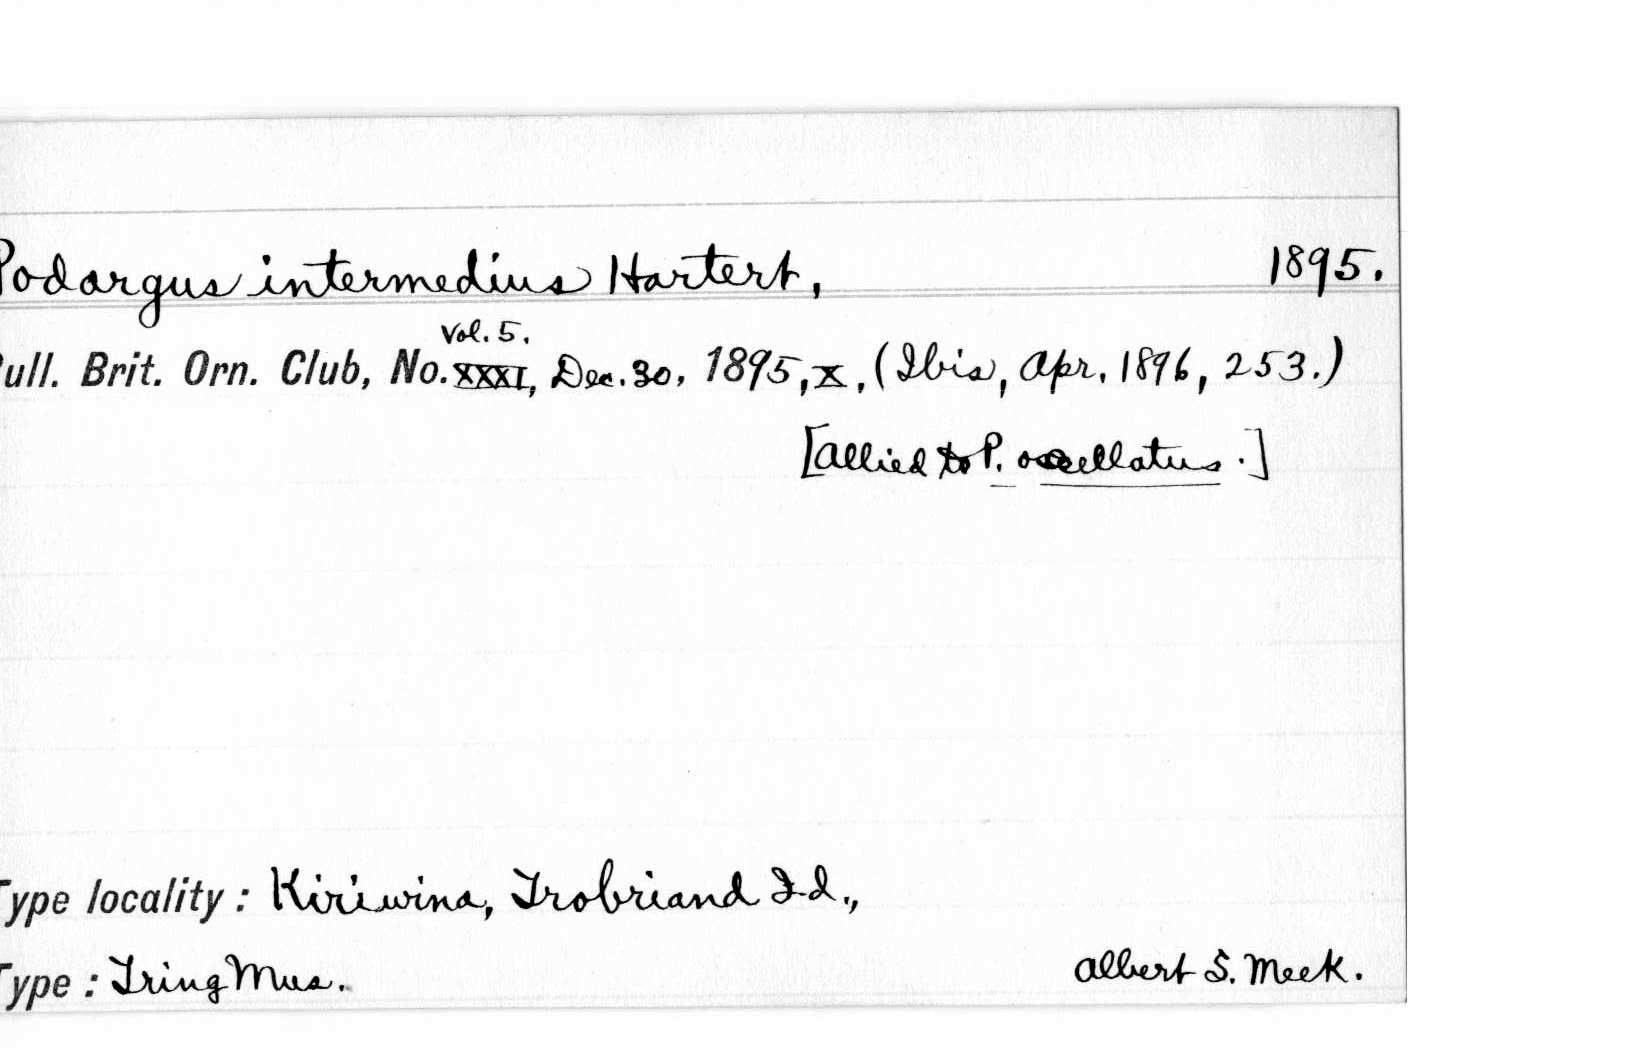 Podargus intermedius Hartert, 1895.
Vol. 5.
Bull. Brit. Orn. Club, No. XXXI, Dec. 30, 1895, X, (Ibis, Apr. 1896, 253.)
[allied to P. ocellatus.]
Type locality: Kiriwina, Trobriand Id.,
Type: Tring Mus. Albert S. Meek.